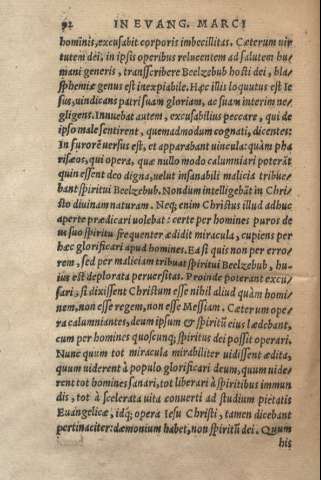 92 IN EVANG. MARCI
hominis, excusabit corporis imbecillitas. Cæterum uir
tutem dei, in ipsis operibus relucentem ad salutem hu
mani generis, transscribere Beelzebub hosti dei, bla
sphemiæ genus est inexpiabile. Hæc illis loquutus est Ie
sus, uindicans patri suam gloriam, ac suam interim ne
gligens. Innuebat autem, excusabilius peccare, qui de
ipso male sentirent, quemadmodum cognati, dicentes:
In furorē uersus est, et apparabant uincula: quàm pha
risæos, qui opera, quæ nullo modo calumniari poterāt
quin essent deo digna, uelut insanabili malicia tribue
bant spiritui Beelzebub. Nondum intelligebāt in Chri
sto diuinam naturam. Neq; enim Christus illud adhuc
aperte prædicari uolebat: certe per homines puros de
us suo spiritu frequenter ædidit miracula, cupiens per
hæc glorificari apud homines. Ea si quis non per erro
rem, sed per maliciam tribuat spiritui Beelzebub, hu
ius est deplorata peruersitas. Proinde poterant excu
sari, si dixissent Christum esse nihil aliud quàm homi
nem, non esse regem, non esse Messiam. Cæterum ope
ra calumniantes, deum ipsum & spiritū eius lædebant,
cum per homines quoscunq; spiritus dei possit operari.
Nunc quum tot miracula mirabiliter uidissent ædita,
quum uiderent à populo glorificari deum, quum uide
rent tot homines sanari, tot liberari à spiritibus immun
dis, tot à scelerata uita conuerti ad studium pietatis
Euangelicæ, idq; opera Iesu Christi, tamen dicebant
pertinaciter: dæmonium habet, non spiritū dei. Quum
his